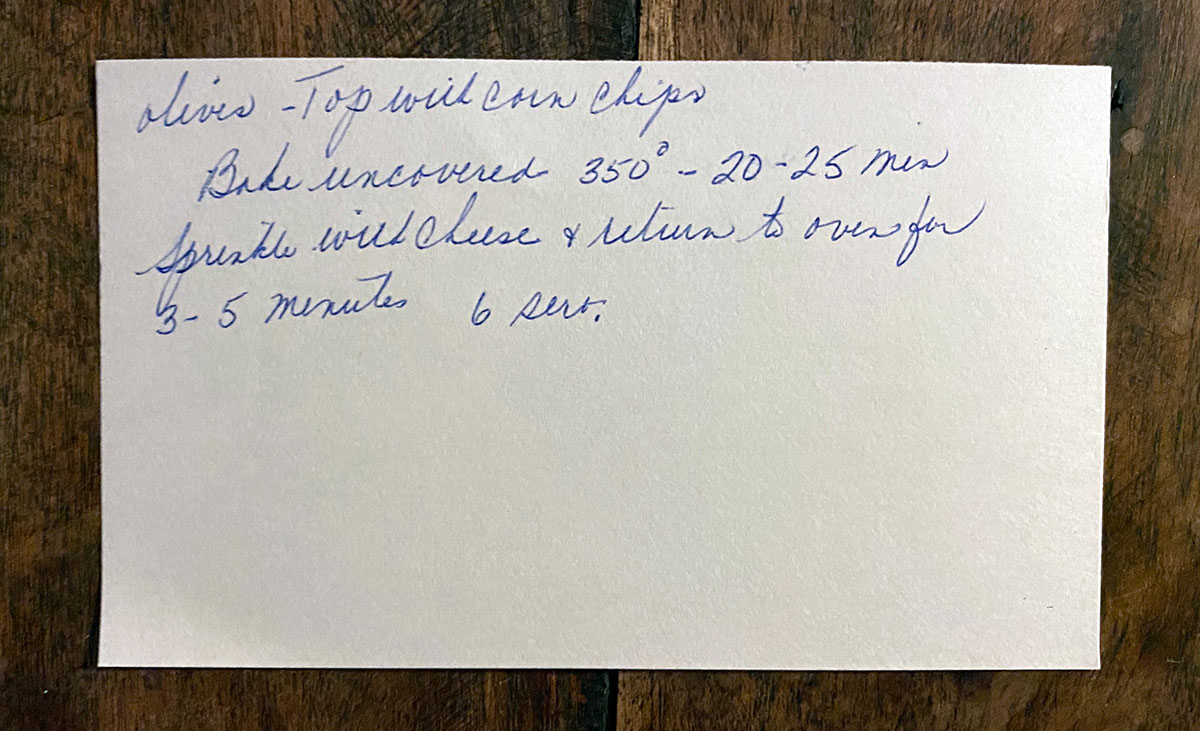 olives - Top with corn chips
Bake uncovered 350° - 20-25 min
Sprinkle with cheese & return to oven for
3-5 minutes 6 serv.